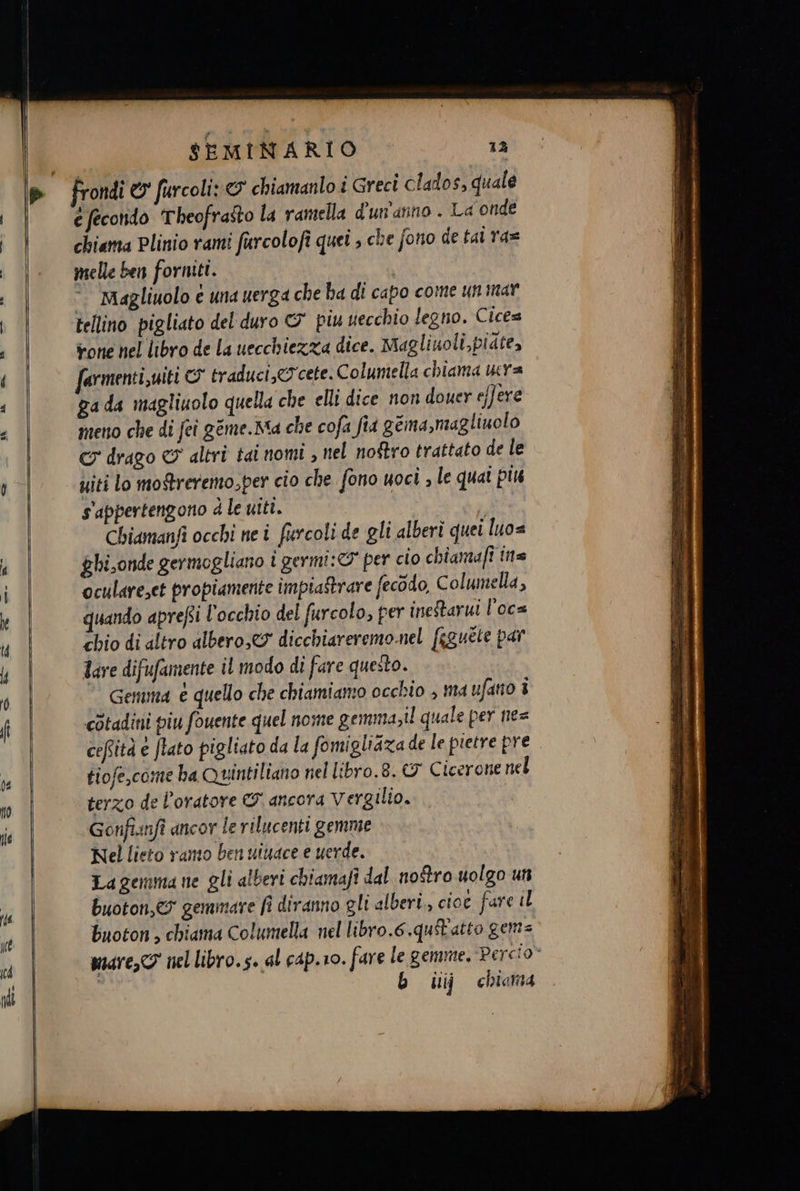 SEMINARIO 12
frondi & ſurcoli: & chiamanlo i Greci clados, quale
é ſecondo Theofraſto la ramella d'un'anno. La onde
chiama Plinio rami ſurcoloſi quei, che ſono de tai ra=
melle ben forniti.
Magliuolo é una uerga che ha di capo come un mar
tellino pigliato del duro & piu uecchio legno. Cice=
rone nel libro de la uecchiezza dice. Magliuoli,piāte,
ſarmenti,uiti & traduci,& cete. Columella chiama uer=
ga da magliuolo quella che elli dice non douer eſſere
meno che di ſei gēme.Ma che coſa ſia gēma,magliuolo
& drago & altri tai nomi, nel noſtro trattato de le
uiti lo moſtreremo,per cio che ſono uoci, le quai piu
s'appertengono à le uiti.
Chiamanſi occhi ne i ſurcoli de gli alberi quei luo=
ghi,onde germogliano i germi:& per cio chiamaſi in=
oculare,et propiamente impiaſtrare ſecōdo, Columella,
quando apreſsi l'occhio del ſurcolo, per ineſtarui l'oc=
chio di altro albero,& dicchiareremo nel ſeguēte par
lare difuſamente il modo di fare queſto.
Gemma é quello che chiamiamo occhio, ma uſano i
cōtadini piu ſouente quel nome gemma,il quale per ne=
ceſsità é ſtato pigliato da la ſomigliāza de le pietre pre
tioſe,come ha Quintiliano nel libro.8. & Cicerone nel
terzo de l'oratore & ancora Vergilio.
Gonfianſi ancor le rilucenti gemme
Nel lieto ramo ben uiuace e uerde.
La gemma ne gli alberi chiamaſi dal noſtro uolgo un
buoton,& gemmare ſi diranno gli alberi, cioé fare il
buoton, chiama Columella nel libro.6.quſt'atto gem=
mare,& nel libro.5. al cap.10. fare le gemme. Percio
b iiij chiama